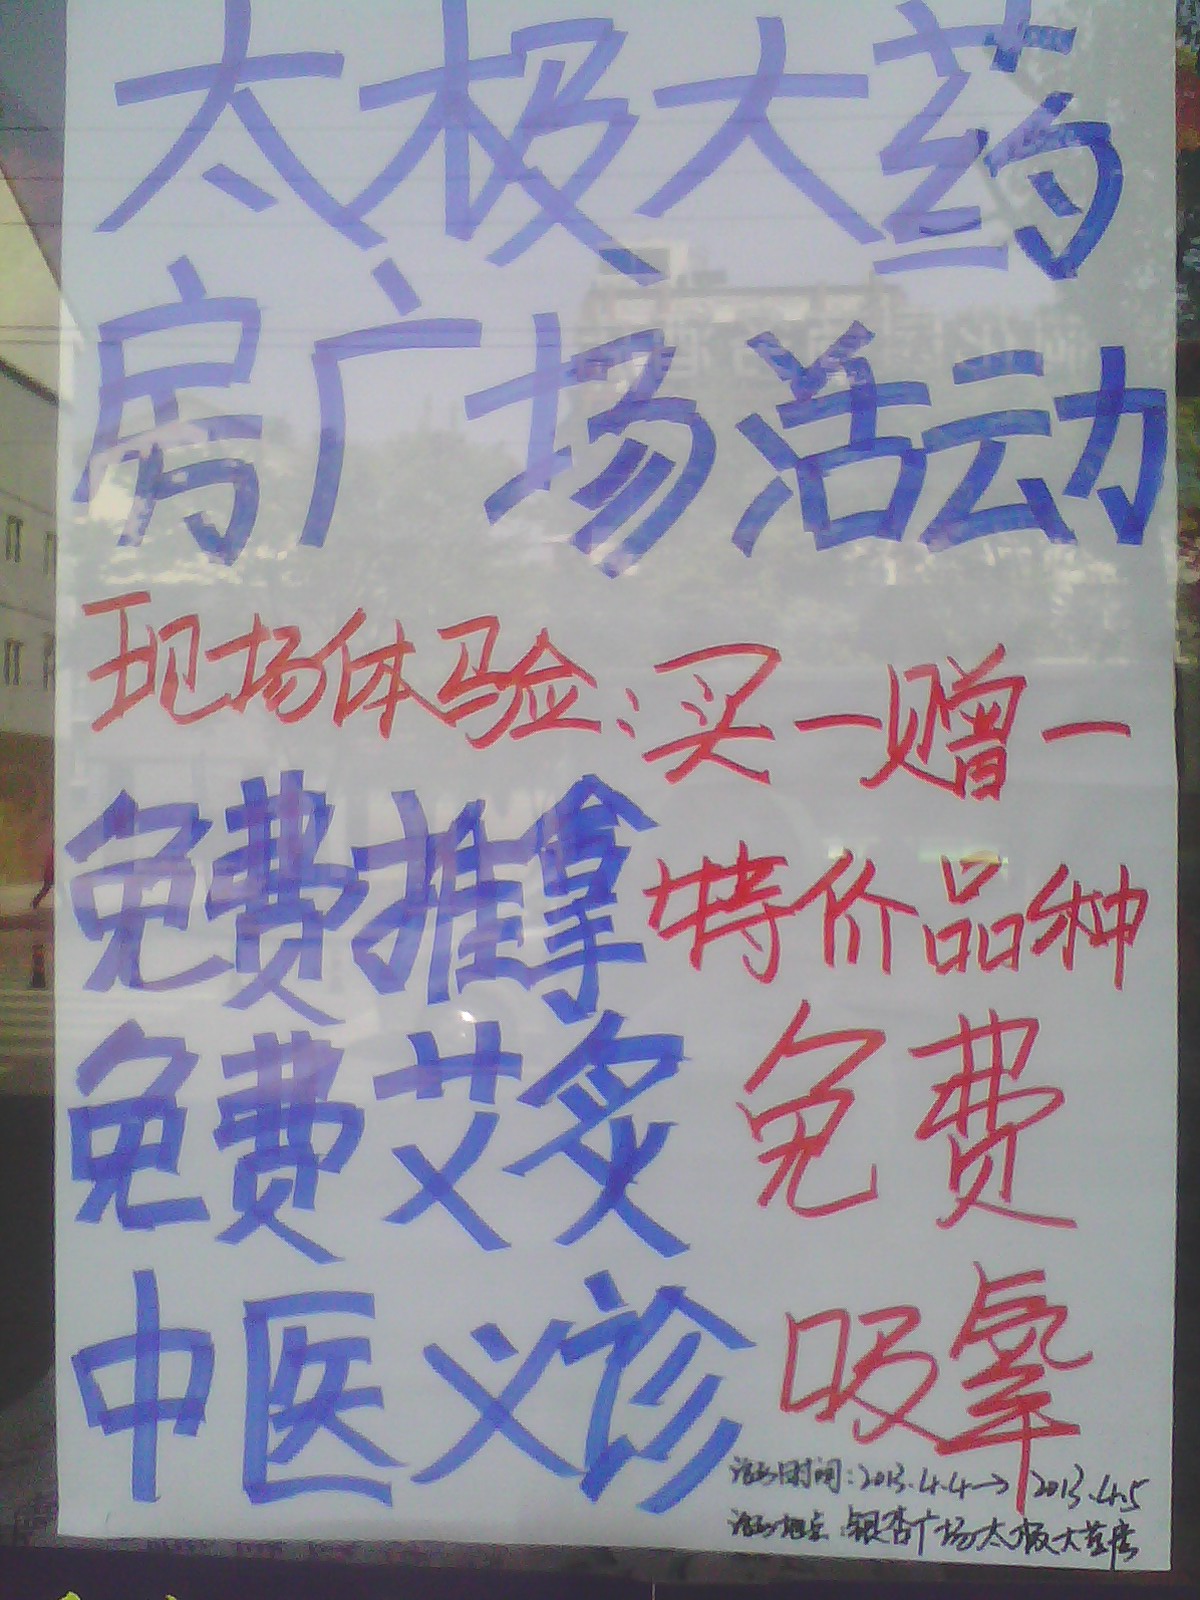 太极大药
房广场活动
现场体验：买一赠一
免费推拿 特价品种
免费艾炙 免费
中医义诊 吸氧
活动时间：2013.4.4→2013.4.5
活动地点：银杏广场太极大药房